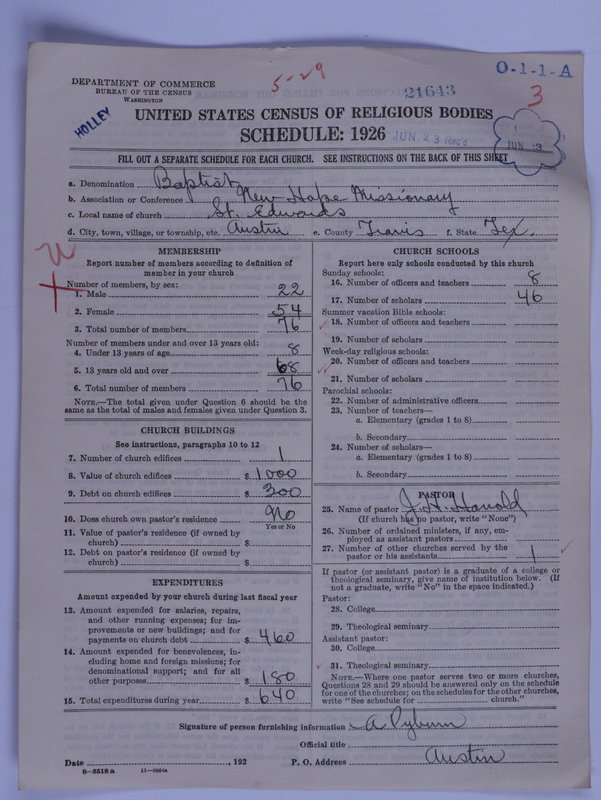 DEPARTMENT OF COMMERCE
BUREAU OF THE CENSUS
WASHINGTON
HOLLEY
5-29
21643
O-1-1-A
3
UNITED STATES CENSUS OF RELIGIOUS BODIES
SCHEDULE: 1926
JUN 23 Rec'd
JUN 23
FILL OUT A SEPARATE SCHEDULE FOR EACH CHURCH. SEE INSTRUCTIONS ON THE BACK OF THIS SHEET
a. Denomination Baptist
b. Association or Conference New Hope Missionary
c. Local name of church St. Edwards
d. City, town, village, or township, etc. Austin e. County Travis f. State Tex.
MEMBERSHIP
Report number of members according to definition of
member in your church
Number of members, by sex:
1. Male 22
2. Female 54
3. Total number of members 76
Number of members under and over 13 years old:
4. Under 13 years of age 8
5. 13 years old and over 68
6. Total number of members 76
NOTE.—The total given under Question 6 should be the
same as the total of males and females given under Question 3.
CHURCH BUILDINGS
See instructions, paragraphs 10 to 12
7. Number of church edifices 1
8. Value of church edifices $ 1000
9. Debt on church edifices $ 300
10. Does church own pastor's residence No
Yes or No
11. Value of pastor's residence (if owned by
church) $
12. Debt on pastor's residence (if owned by
church) $
EXPENDITURES
Amount expended by your church during last fiscal year
13. Amount expended for salaries, repairs,
and other running expenses; for im-
provements or new buildings; and for
payments on church debt $ 460
14. Amount expended for benevolences, in-
cluding home and foreign missions; for
denominational support; and for all
other purposes $ 180
15. Total expenditures during year $ 640
CHURCH SCHOOLS
Report here only schools conducted by this church
Sunday schools:
16. Number of officers and teachers 8
17. Number of scholars 46
Summer vacation Bible schools:
18. Number of officers and teachers
19. Number of scholars
Week-day religious schools:
20. Number of officers and teachers
21. Number of scholars
Parochial schools:
22. Number of administrative officers
23. Number of teachers—
a. Elementary (grades 1 to 8)
b. Secondary
24. Number of scholars—
a. Elementary (grades 1 to 8)
b. Secondary
PASTOR
25. Name of pastor J. H. Harold
(If church has no pastor, write "None")
26. Number of ordained ministers, if any, em-
ployed as assistant pastors
27. Number of other churches served by the
pastor or his assistants 1
If pastor (or assistant pastor) is a graduate of a college or
theological seminary, give name of institution below. (If
not a graduate, write "No" in the space indicated.)
Pastor:
28. College
29. Theological seminary
Assistant pastor:
30. College
31. Theological seminary
NOTE.—Where one pastor serves two or more churches,
Questions 28 and 29 should be answered only on the schedule
for one of the churches; on the schedules for the other churches,
write "See schedule for church."
Signature of person furnishing information A Pyburn
Official title
Date , 192 P. O. Address Austin
8—5518 a 11—9034a